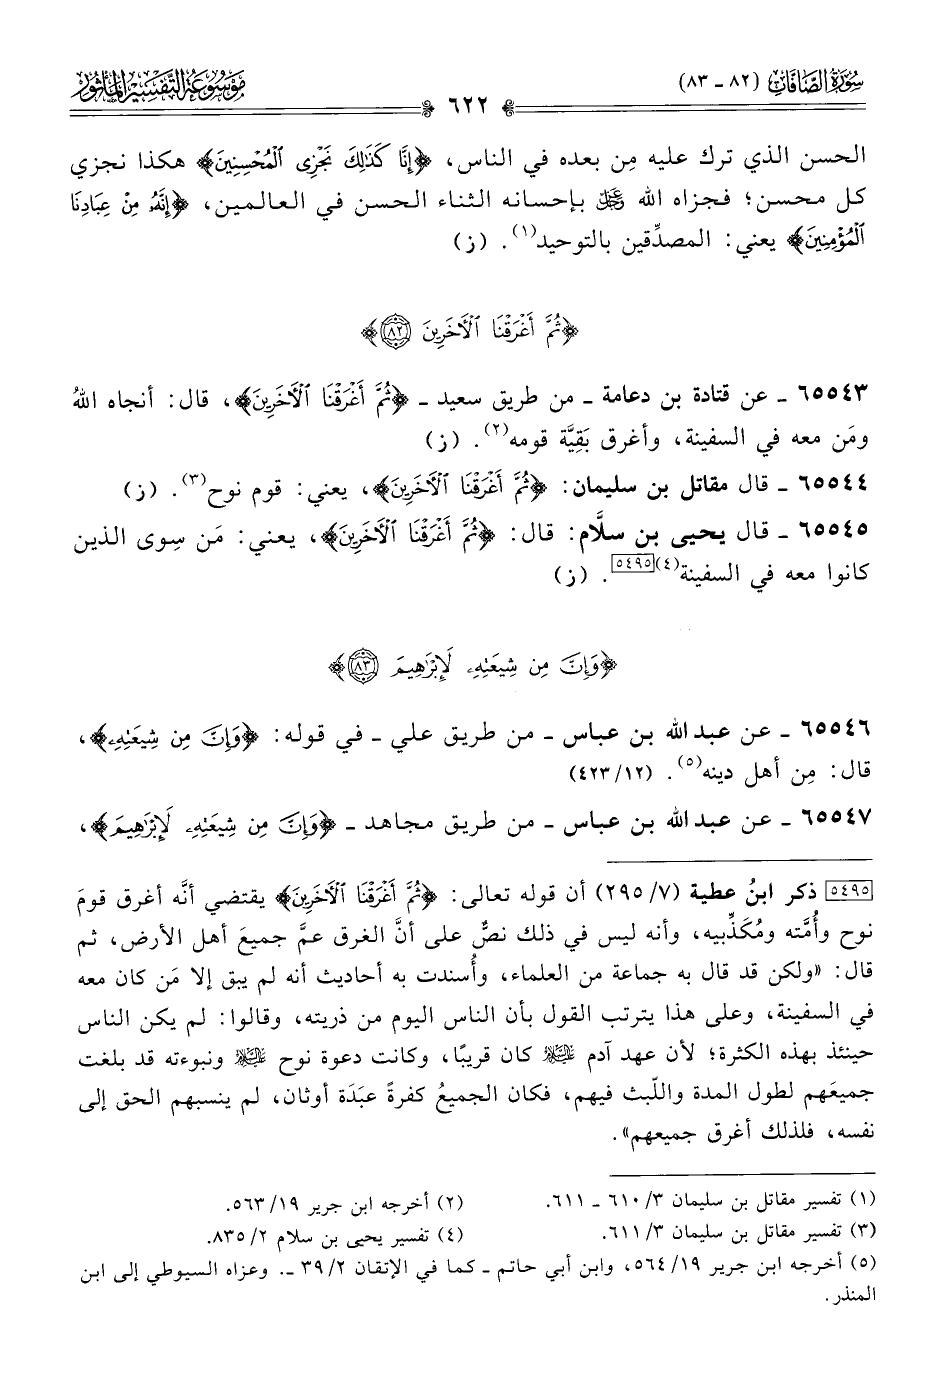 سورة الصافات (٨٢ - ٨٣)
موسوعة التفسير المأثور
٦٢٢
الحسن الذي ترك عليه مِن بعده في الناس، ﴿إِنَّا كَذَٰلِكَ نَجْزِى ٱلْمُحْسِنِينَ﴾ هكذا نجزي
كل محسن؛ فجزاه الله عزوجل بإحسانه الثناء الحسن في العالمين، ﴿إِنَّهُۥ مِنْ عِبَادِنَا
ٱلْمُؤْمِنِينَ﴾ يعني: المصدِّقين بالتوحيد(١). (ز)
﴿ثُمَّ أَغْرَقْنَا ٱلْأَخَرِينَ ٨٢﴾
٦٥٥٤٣ - عن قتادة بن دعامة - من طريق سعيد - ﴿ثُمَّ أَغْرَقْنَا ٱلْأَخَرِينَ﴾، قال: أنجاه اللهُ
ومَن معه في السفينة، وأغرق بَقِيَّة قومه(٢). (ز)
٦٥٥٤٤ - قال مقاتل بن سليمان: ﴿ثُمَّ أَغْرَقْنَا ٱلْأَخَرِينَ﴾، يعني: قوم نوح(٣). (ز)
٦٥٥٤٥ - قال يحيى بن سلَّام: قال: ﴿ثُمَّ أَغْرَقْنَا ٱلْأَخَرِينَ﴾، يعني: مَن سِوى الذين
كانوا معه في السفينة(٤)[٥٤٩٥]. (ز)
﴿وَإِنَّ مِن شِيعَتِهِۦ لَإِبْرَٰهِيمَ ٨٣﴾
٦٥٥٤٦ - عن عبد الله بن عباس - من طريق علي - في قوله: ﴿وَإِنَّ مِن شِيعَتِهِۦ﴾،
قال: مِن أهل دينه(٥). (٤٢٣/١٢)
٦٥٥٤٧ - عن عبد الله بن عباس - من طريق مجاهد - ﴿وَإِنَّ مِن شِيعَتِهِۦ لَإِبْرَٰهِيمَ﴾،
[٥٤٩٥] ذكر ابنُ عطية (٧/ ٢٩٥) أن قوله تعالى: ﴿ثُمَّ أَغْرَقْنَا ٱلْأَخَرِينَ﴾ يقتضي أنَّه أغرق قومَ
نوح وأُمَّته ومُكَذِّبيه، وأنه ليس في ذلك نصٌّ على أنَّ الغرق عمَّ جميعَ أهل الأرض، ثم
قال: «ولكن قد قال به جماعة من العلماء، وأُسندت به أحاديث أنه لم يبق إلا مَن كان معه
في السفينة، وعلى هذا يترتب القول بأن الناس اليوم من ذريته، وقالوا: لم يكن الناس
حينئذ بهذه الكثرة؛ لأن عهد آدم عليه السلام كان قريبًا، وكانت دعوة نوح عليه السلام ونبوءته قد بلغت
جميعَهم لطول المدة واللّبث فيهم، فكان الجميعُ كفرةً عبَدَة أوثان، لم ينسبهم الحق إلى
نفسه، فلذلك أغرق جميعهم».
(١) تفسير مقاتل بن سليمان ٣/ ٦١٠ - ٦١١. (٢) أخرجه ابن جرير ١٩/ ٥٦٣.
(٣) تفسير مقاتل بن سليمان ٣/ ٦١١. (٤) تفسير يحيى بن سلام ٢/ ٨٣٥.
(٥) أخرجه ابن جرير ١٩/ ٥٦٤، وابن أبي حاتم - كما في الإتقان ٢/ ٣٩ -. وعزاه السيوطي إلى ابن
المنذر.